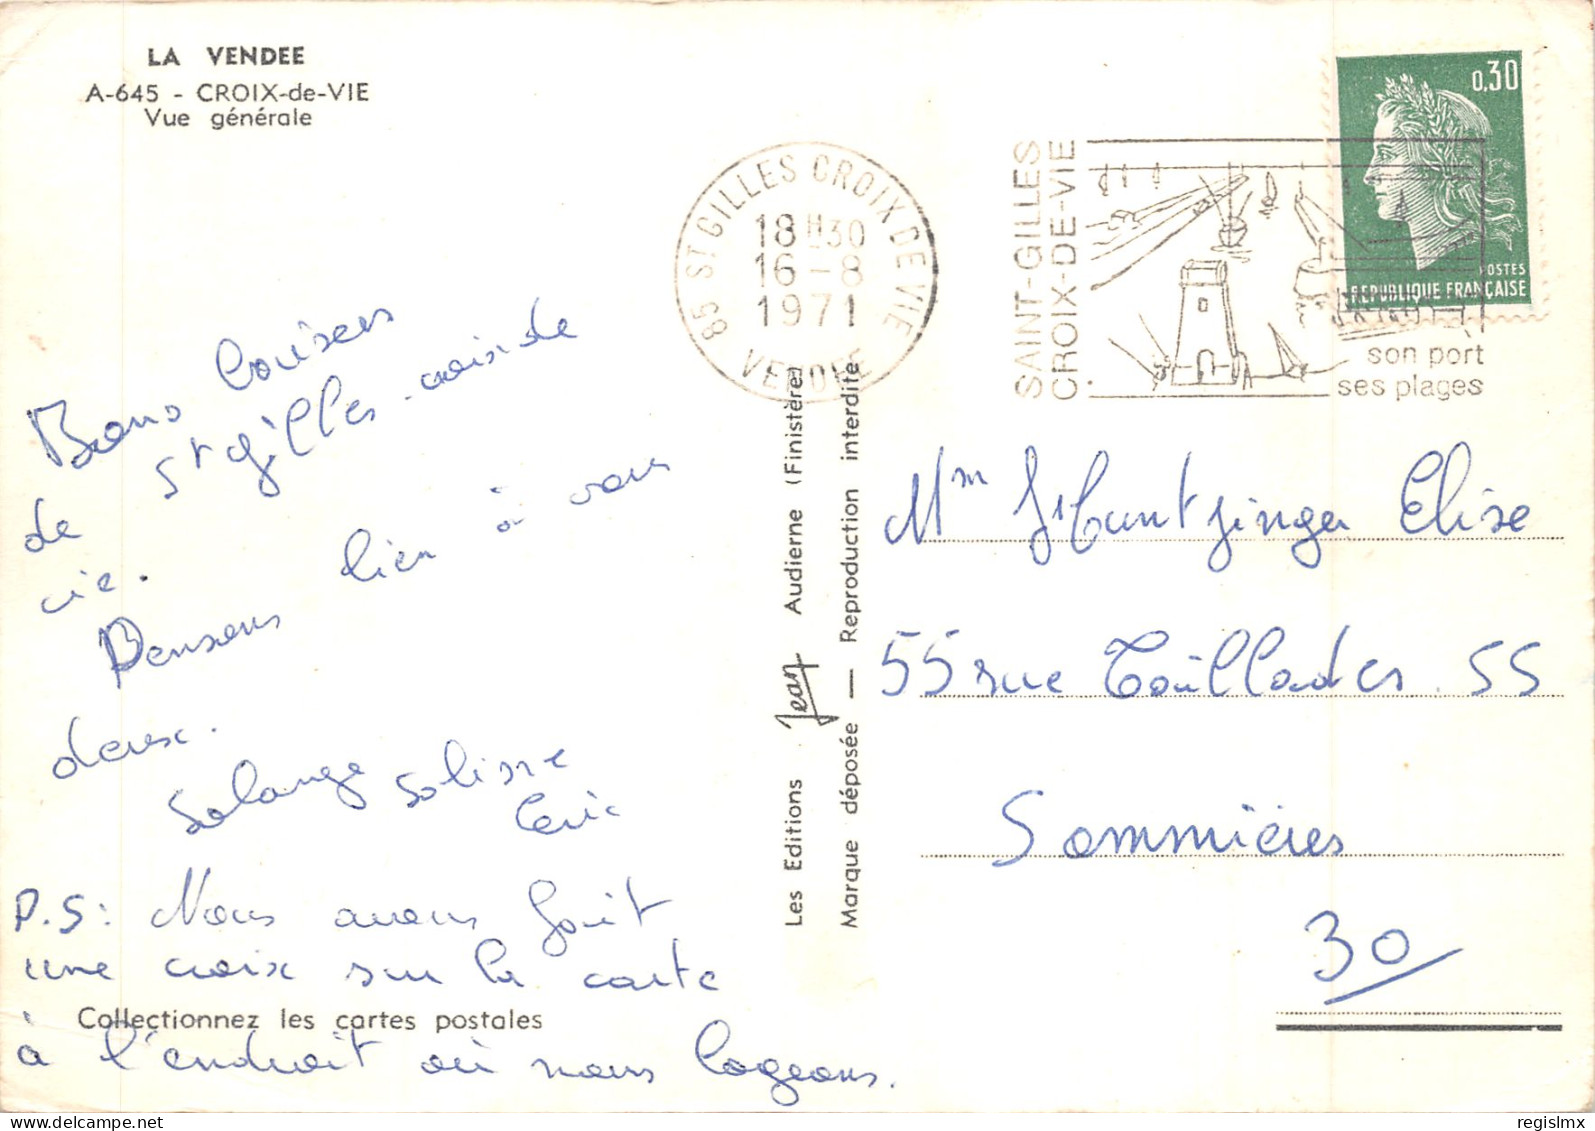 LA VENDEE
A-645 - CROIX-de-VIE
Vue générale
Bons baisers
de St gilles-croix de
vie.
Pensons bien à vous
deux.
Solange Solisne
P.S: Nous avons fait
une croix sur la carte
Collectionnez les cartes postales
à l'endroit où nous logeons.
Les Editions Jean Audierne (Finistère)
Marque déposée — Reproduction interdite
85 ST GILLES CROIX DE VIE
18H30
16-8
1971
VENDEE
SAINT-GILLES
CROIX-DE-VIE
son port
ses plages
0,30
POSTES
REPUBLIQUE FRANÇAISE
Mme Huntzinger Elise
55 rue Taillades 55
Sommières
30
delcampe.net
regislmx